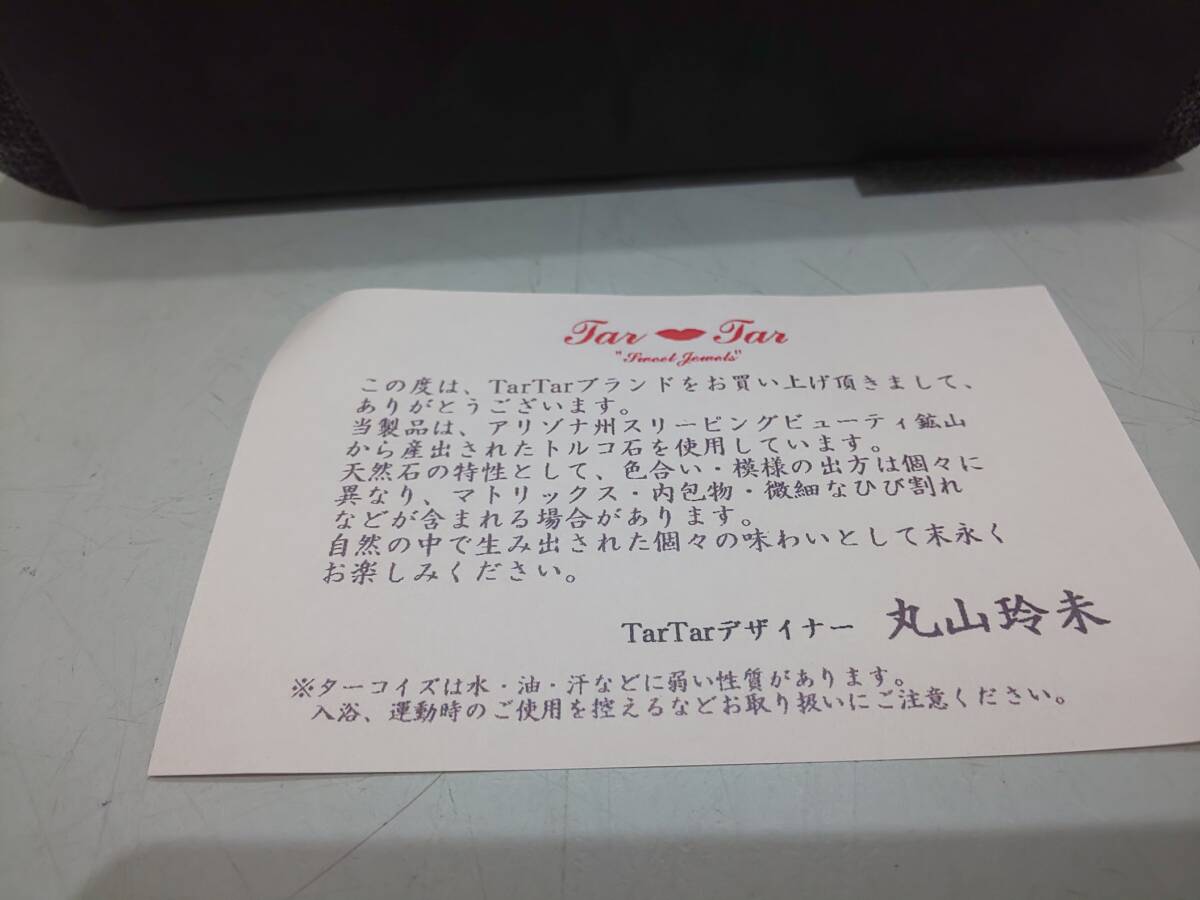 Tar Tar
"Sweet Jewels"
この度は、TarTarブランドをお買い上げ頂きまして、
ありがとうございます。
当製品は、アリゾナ州スリーピングビューティ鉱山
から産出されたトルコ石を使用しています。
天然石の特性として、色合い・模様の出方は個々に
異なり、マトリックス・内包物・微細なひび割れ
などが含まれる場合があります。
自然の中で生み出された個々の味わいとして末永く
お楽しみください。
TarTarデザイナー 丸山玲未
※ターコイズは水・油・汗などに弱い性質があります。
入浴、運動時のご使用を控えるなどお取り扱いにご注意ください。